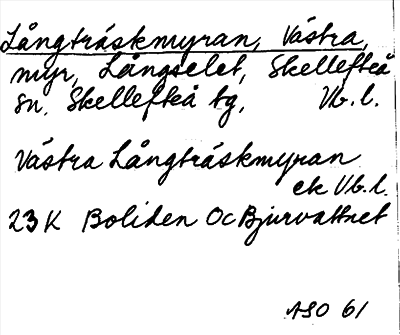 Långträskmyran, Västra,
myr, Långselet, Skellefteå
sn. Skellefteå tg, Vb.l.
Västra Långträskmyran
ek Vb.l.
23K Boliden Oc Bjurvattnet
ASO 61